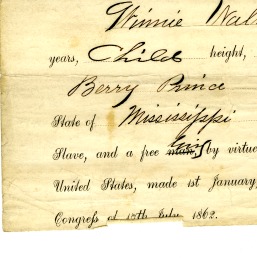 Winnie
years, Child height,
Berry Prince
State of Mississippi
Slave, and a free man, Girl by virtue
United States, made 1st January,
Congress of 17th July 1862.